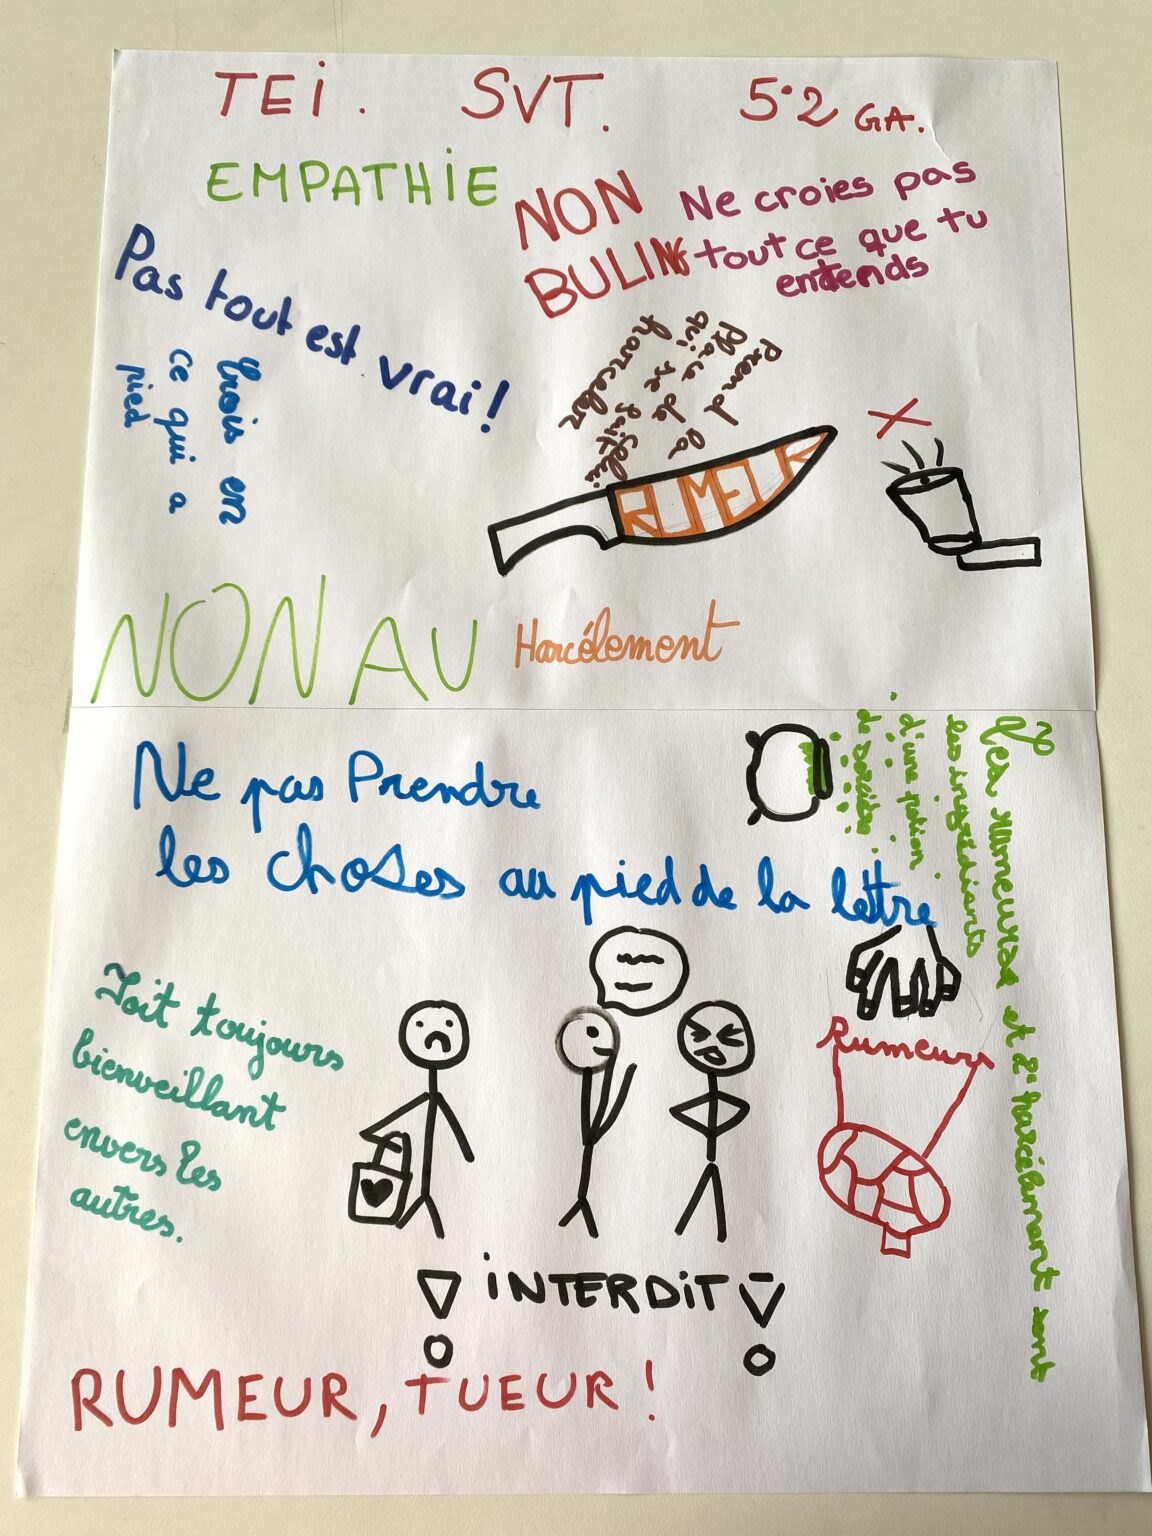 TEi. SVT. 5°2 GA.
EMPATHiE
NON
BULING
Ne croies pas
tout ce que tu
entends
Pas tout est vrai!
Crois en
ce qui a
pied
Prend la
place de celui
qui se fait
harceler
RUMEUR
NON AU Harcélement
Ne pas Prendre
les choses au pied de la lettre
Les rumeurs et l'harcélement sont
les ingrédients
d'une potion
de sorcière.
Soit toujours
bienveillant
envers les
autres.
Rumeurs
iNTERDiT
RUMEUR, TUEUR!